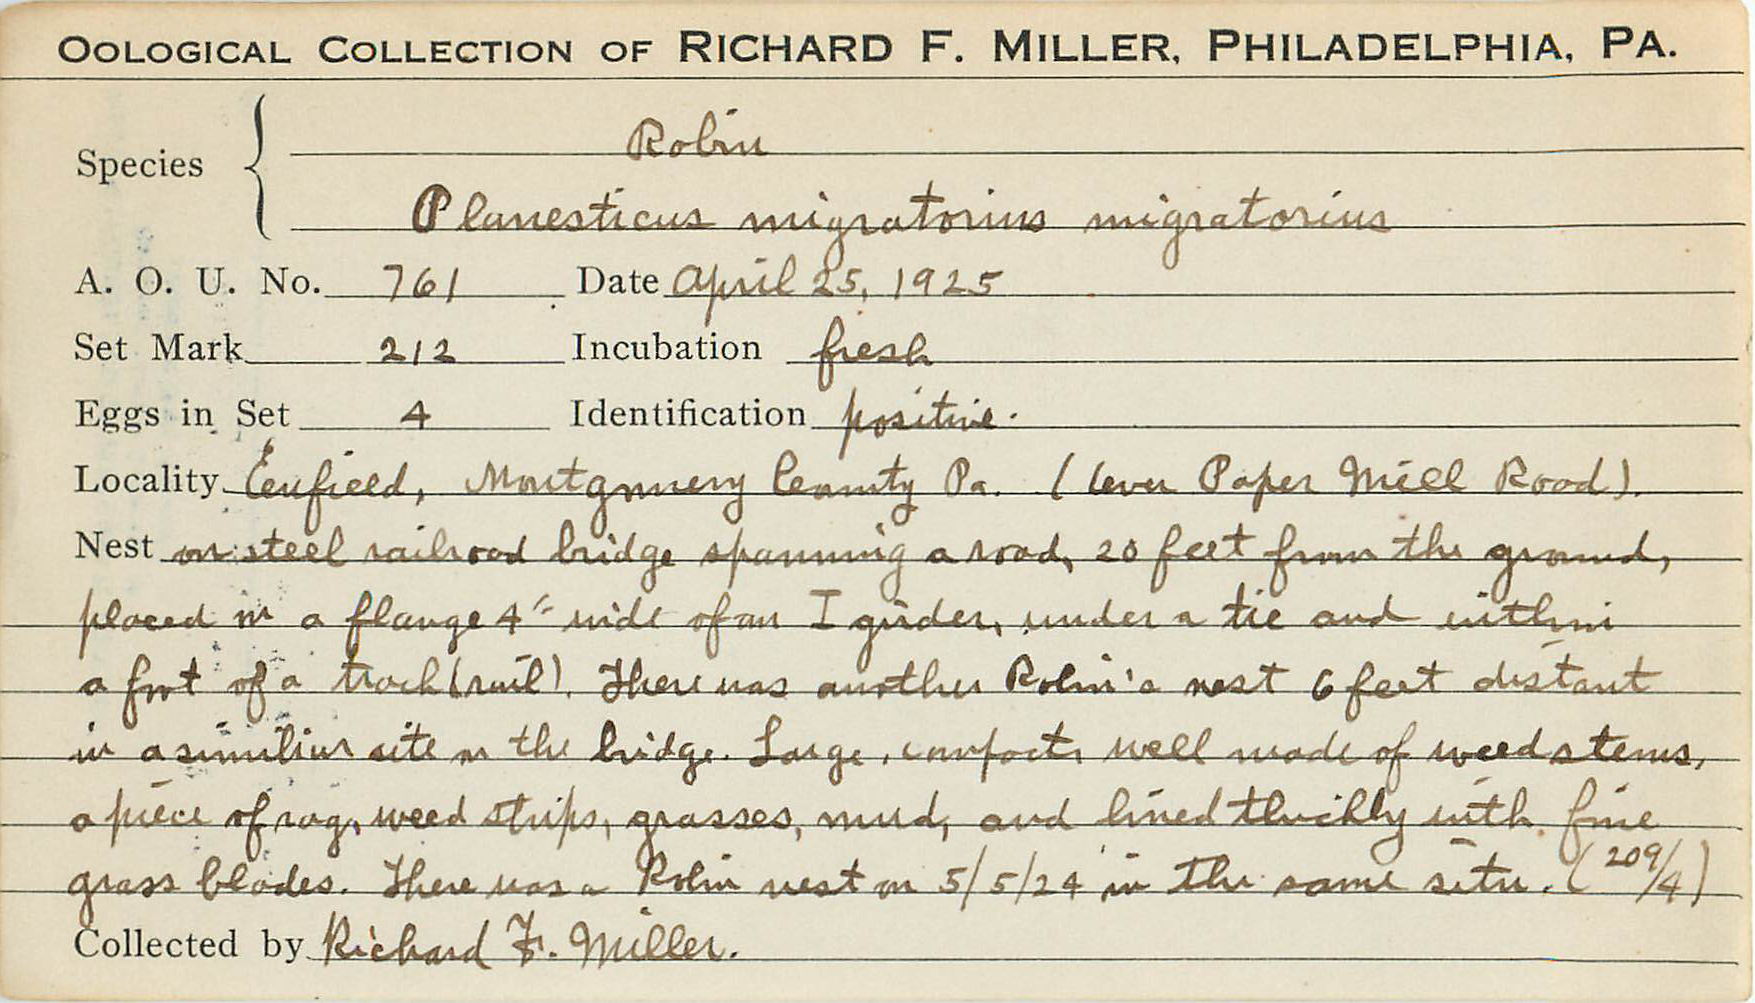 OOLOGICAL COLLECTION OF RICHARD F. MILLER, PHILADELPHIA, PA.
Species { Robin
Planesticus migratorius migratorius
A. O. U. No. 761 Date April 25, 1925
Set Mark 212 Incubation fresh
Eggs in Set 4 Identification positive.
Locality Enfield, Montgomery County Pa. ( Paper Mill Road).
Nest on steel railroad bridge spanning a road, 20 feet from the ground,
placed in a flange 4" wide of an I girder, under a tie and within
a foot of a track (rail). There was another Robin's nest 6 feet distant
in a similiar site on the bridge. Large, compact, well made of weed stems,
a piece of rag, weed strips, grasses, mud, and lined thickly with fine
grass blades. There was a Robin nest on 5/5/24 in the same site. (209/4)
Collected by Richard F. Miller.